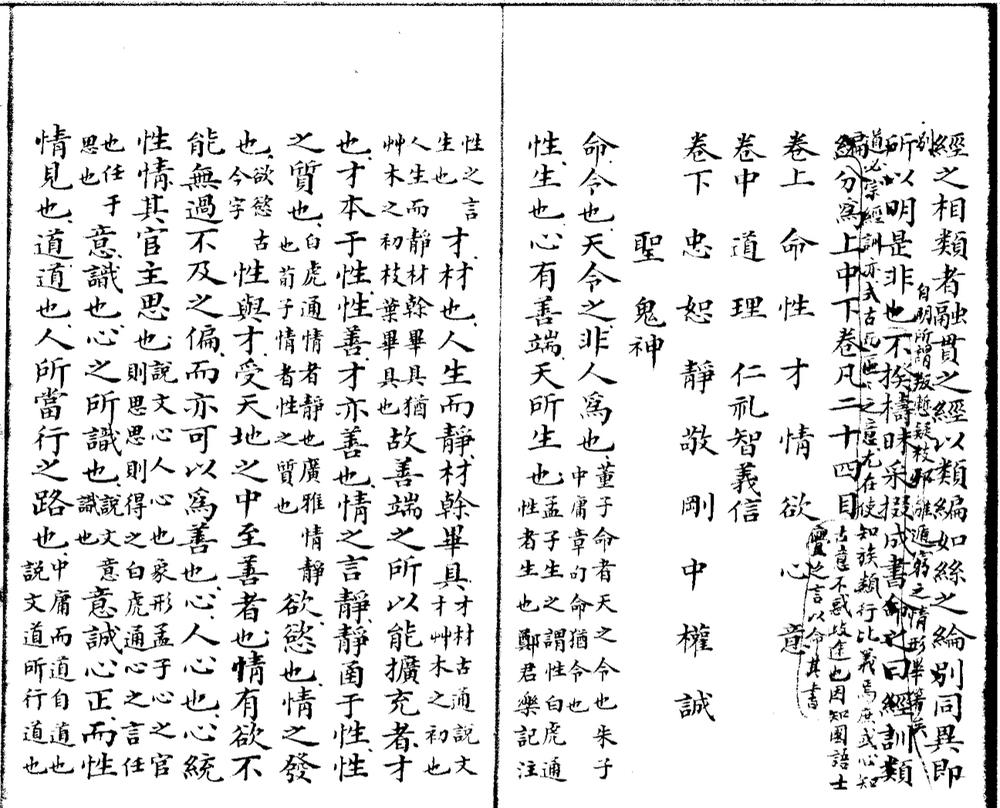 經之相類者融貫之經以類編如絲之綸別同異即
別
所以明是非也不揆檮昧采掇成書命之曰經訓類
編分為上中下卷凡二十四目
道必宗經訓亦式古
之意尤在使知族類行比義焉庶或心知
古意不惑歧途也因知國語士
亹之言以命其書
卷上 命 性 才 情 欲 心 意
卷中 道 理 仁 礼 智 義 信
卷下 忠 恕 靜 敬 剛 中 權 誠
聖 鬼神
命令也天令之非人為也董子命者天之令也朱子中庸章句命猶令也
性生也心有善端天所生也孟子生之謂性白虎通性者生也鄭君樂記注
性之言生也才材也人生而靜材幹畢具才材古通說文才艸木之初也
人生而靜材幹畢具猶艸木之初枝葉畢具也故善端之所以能擴充者才
也才本于性性善才亦善也情之言靜靜函于性性
之質也白虎通情者靜也廣雅情靜也荀子情者性之質也欲慾也情之發
也欲慾古今字性與才受天地之中至善者也情有欲不
能無過不及之偏而亦可以為善也心人心也心統
性情其官主思也說文心人心也象形孟子心之官則思思則得之白虎通心之言任
也任于思也意識也心之所識也說文意識也意誠心正而性
情見也道道也人所當行之路也中庸而道自道也說文道所行道也